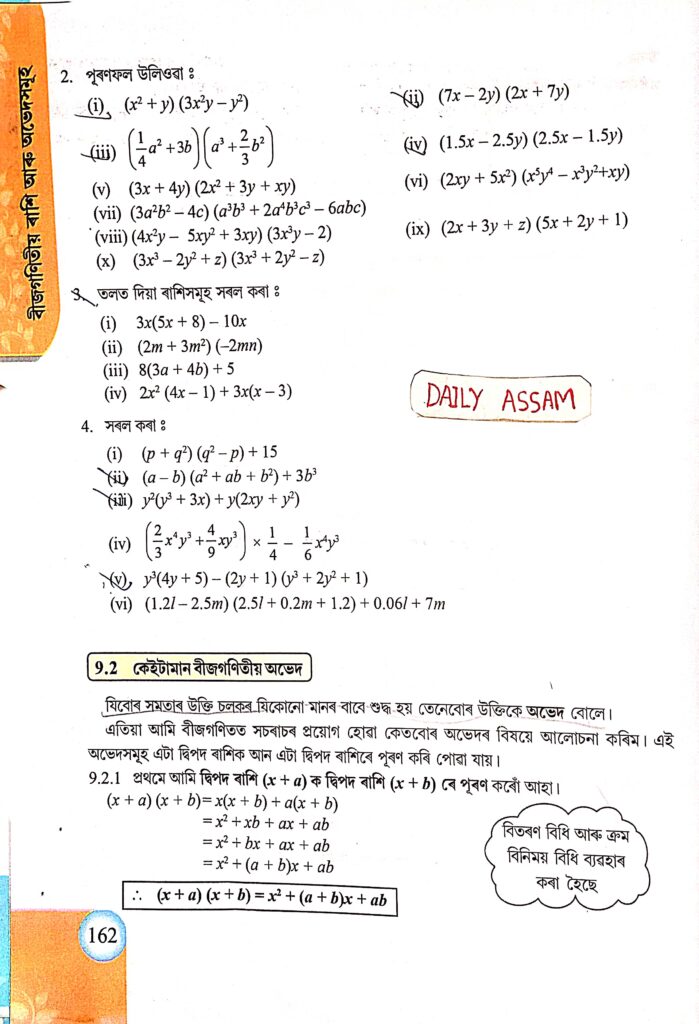 বীজগণিতীয় ৰাশি আৰু অভেদসমূহ
2. পূৰণফল উলিওৱা :
(i) (x² + y) (3x²y – y²)
(ii) (7x – 2y) (2x + 7y)
(iii) (1/4 a² + 3b) (a³ + 2/3 b²)
(iv) (1.5x – 2.5y) (2.5x – 1.5y)
(v) (3x + 4y) (2x² + 3y + xy)
(vi) (2xy + 5x²) (x⁵y⁴ – x³y²+xy)
(vii) (3a²b² – 4c) (a³b³ + 2a⁴b³c³ – 6abc)
(viii) (4x²y – 5xy² + 3xy) (3x³y – 2)
(ix) (2x + 3y + z) (5x + 2y + 1)
(x) (3x³ – 2y² + z) (3x³ + 2y² – z)
3. তলত দিয়া ৰাশিসমূহ সৰল কৰা :
(i) 3x(5x + 8) – 10x
(ii) (2m + 3m²) (–2mn)
(iii) 8(3a + 4b) + 5
(iv) 2x² (4x – 1) + 3x(x – 3)
DAILY ASSAM
4. সৰল কৰা :
(i) (p + q²) (q² – p) + 15
(ii) (a – b) (a² + ab + b²) + 3b³
(iii) y²(y³ + 3x) + y(2xy + y²)
(iv) (2/3 x⁴y³ + 4/9 xy³) × 1/4 – 1/6 x⁴y³
(v) y³(4y + 5) – (2y + 1) (y³ + 2y² + 1)
(vi) (1.2l – 2.5m) (2.5l + 0.2m + 1.2) + 0.06l + 7m
9.2 কেইটামান বীজগণিতীয় অভেদ
যিবোৰ সমতাৰ উক্তি চলকৰ যিকোনো মানৰ বাবে শুদ্ধ হয় তেনেবোৰ উক্তিকে অভেদ বোলে।
এতিয়া আমি বীজগণিতত সচৰাচৰ প্ৰয়োগ হোৱা কেতবোৰ অভেদৰ বিষয়ে আলোচনা কৰিম। এই
অভেদসমূহ এটা দ্বিপদ ৰাশিক আন এটা দ্বিপদ ৰাশিৰে পূৰণ কৰি পোৱা যায়।
9.2.1 প্ৰথমে আমি দ্বিপদ ৰাশি (x + a) ক দ্বিপদ ৰাশি (x + b) ৰে পূৰণ কৰোঁ আহা।
(x + a) (x + b)= x(x + b) + a(x + b)
= x² + xb + ax + ab
= x² + bx + ax + ab
= x² + (a + b)x + ab
বিতৰণ বিধি আৰু ক্ৰম
বিনিময় বিধি ব্যৱহাৰ
কৰা হৈছে
∴ (x + a) (x + b) = x² + (a + b)x + ab
162